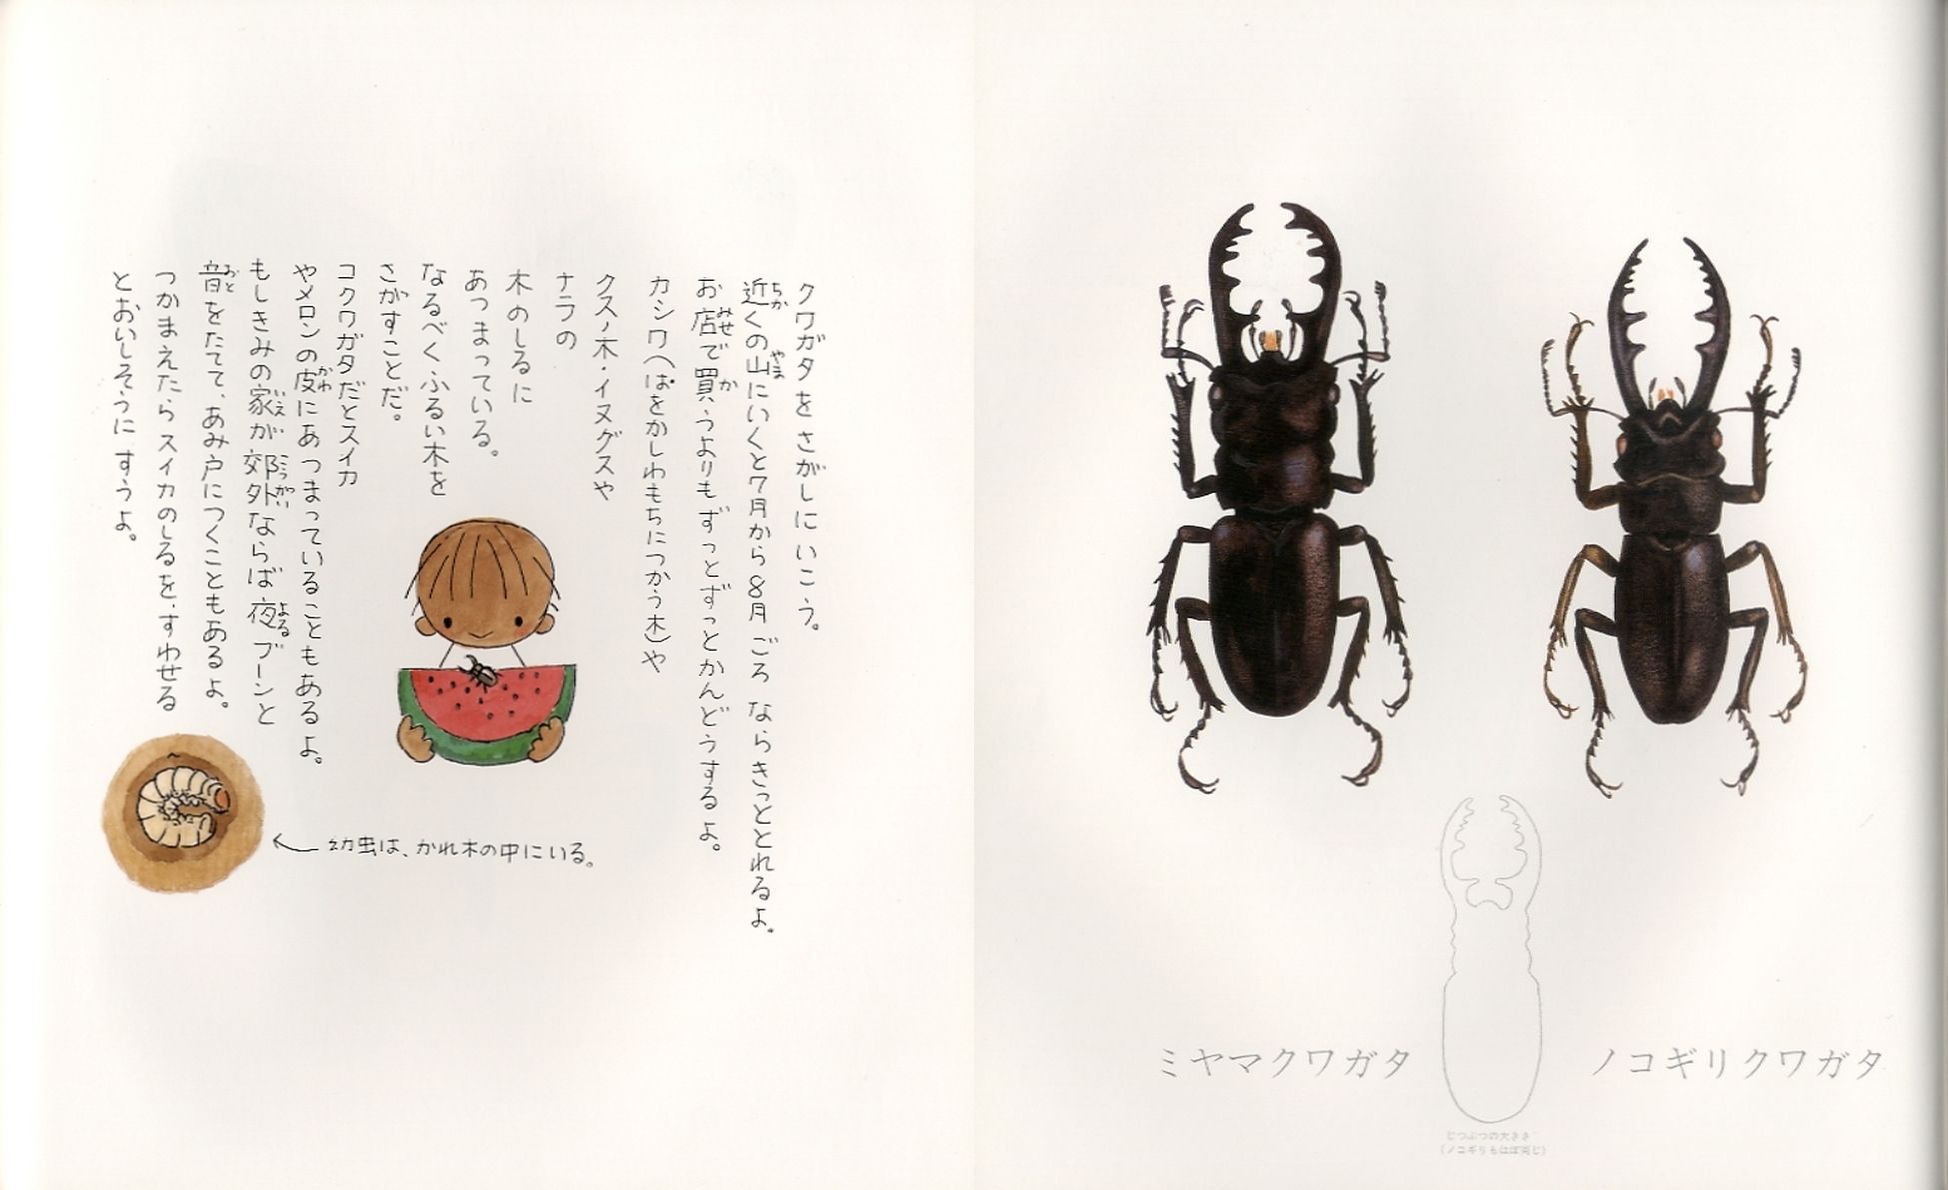 クワガタをさがしにいこう。
近くの山にいくと7月から8月ごろならきっととれるよ。
お店で買うよりもずっとずっとかんどうするよ。
カシワ(はっぱをかしわもちにつかう木)や
クスノ木・イヌグスや
ナラの
木のしるに
あつまっている。
なるべくふるい木を
さがすことだ。
コクワガタだとスイカ
やメロンの皮にあつまっていることもあるよ。
もしきみの家が郊外ならば夜ブーンと
音をたてて、あみ戸につくこともあるよ。
つかまえたらスイカのしるを、すわせる
とおいしそうにすうよ。
幼虫は、かれ木の中にいる。
ミヤマクワガタ
ノコギリクワガタ
じつぶつの大きさ
(ノコギリもほぼ同じ)